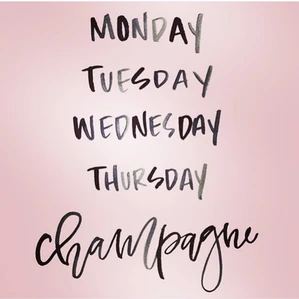 MONDAY
TUESDAY
WEDNESDAY
THURSDAY
champagne